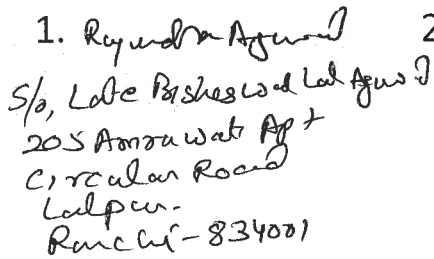 1. Rajendra Agarwal 2
S/o, Late Bisheswar Lal Agarwal
205 Amrawati Apt
Circular Road
Lalpur.
Ranchi-834001